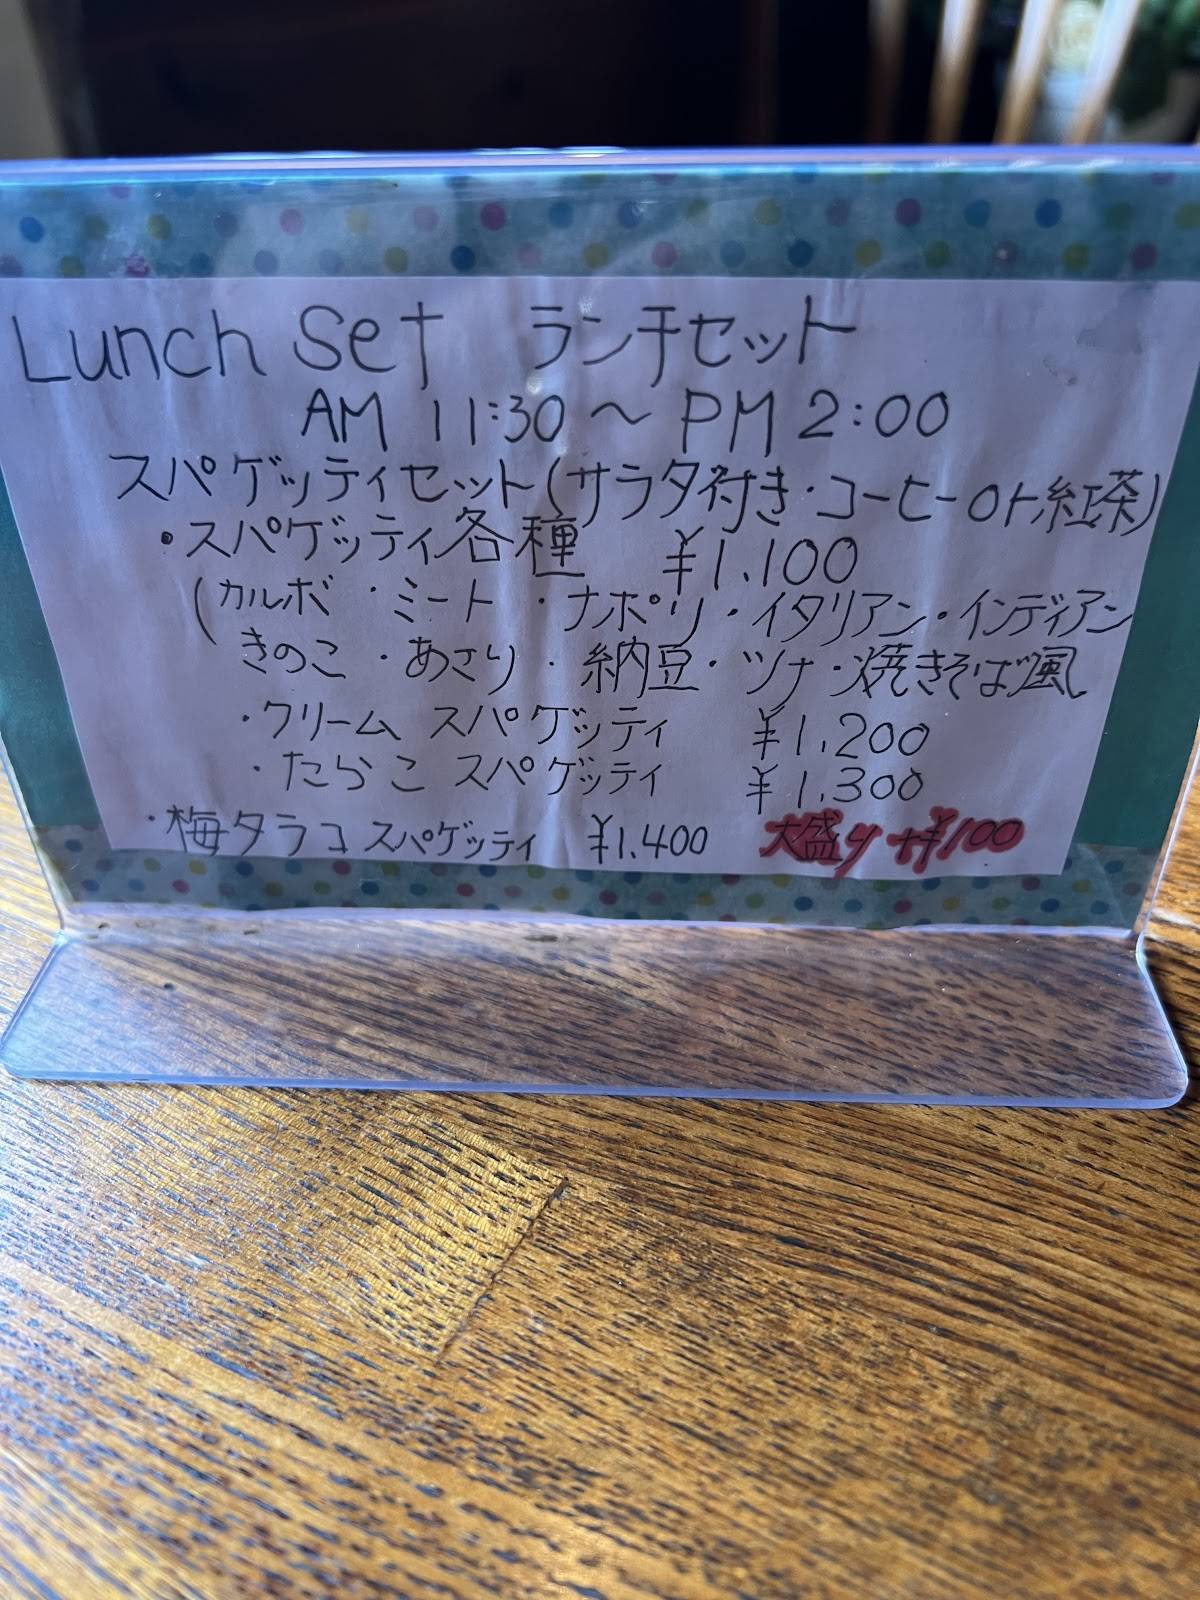 Lunch Set ランチセット
AM 11:30 ～ PM 2:00
スパゲッティセット(サラダ付き・コーヒーor紅茶)
・スパゲッティ各種 ¥1,100
(カルボ・ミート・ナポリ・イタリアン・インディアン
きのこ・あさり・納豆・ツナ・焼きそば風
・クリーム スパゲッティ ¥1,200
・たらこ スパゲッティ ¥1,300
・梅タラコ スパゲッティ ¥1,400 大盛り +¥100